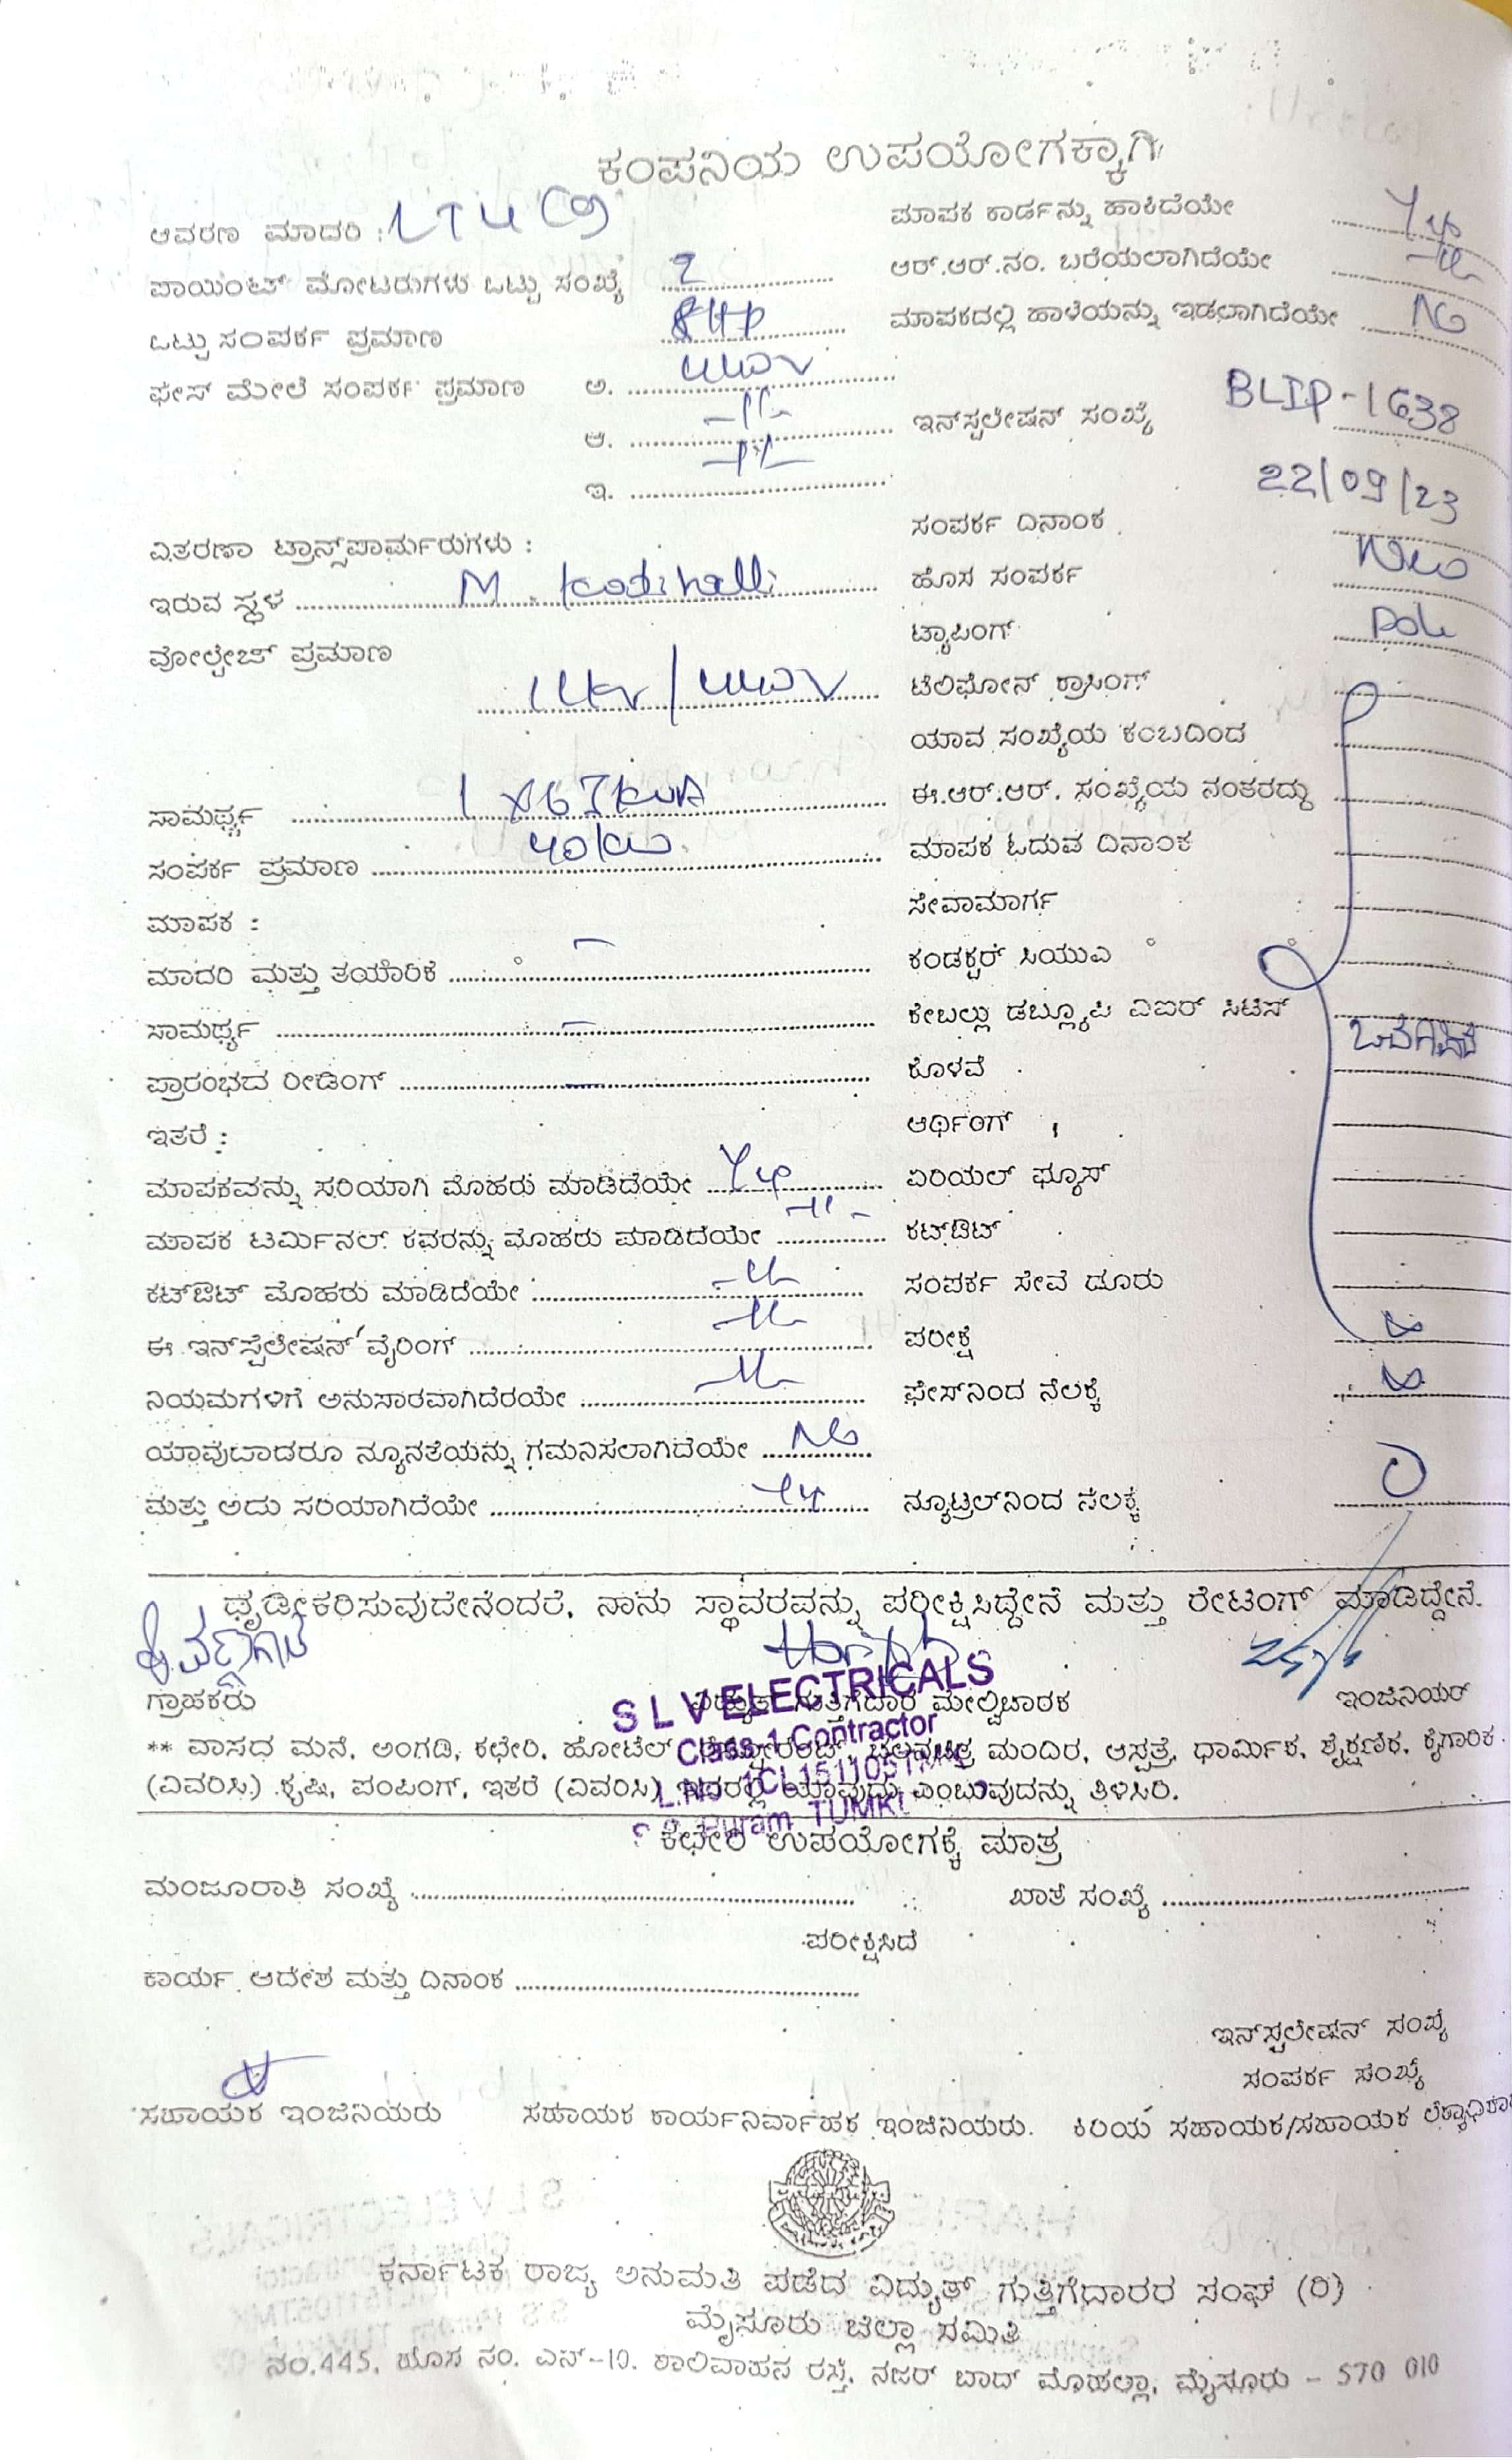 ಕಂಪನಿಯ ಉಪಯೋಗಕ್ಕಾಗಿ
ಆವರಣ ಮಾದರಿ : LT4(a)
ಪಾಯಿಂಟ್ ಮೋಟರುಗಳು ಒಟ್ಟು ಸಂಖ್ಯೆ 2
ಒಟ್ಟು ಸಂಪರ್ಕ ಪ್ರಮಾಣ 8HP
ಫೇಸ್ ಮೇಲೆ ಸಂಪರ್ಕ ಪ್ರಮಾಣ ಅ. 440V
ಆ. -11-
ಇ. -11-
ವಿತರಣಾ ಟ್ರಾನ್ಸ್‌ಪಾರ್ಮರುಗಳು :
ಇರುವ ಸ್ಥಳ M. Kodihalli
ವೋಲ್ಟೇಜ್ ಪ್ರಮಾಣ
11kv/440V
ಸಾಮರ್ಥ್ಯ 1 x 63kVA
ಸಂಪರ್ಕ ಪ್ರಮಾಣ 40kw
ಮಾಪಕ :
ಮಾದರಿ ಮತ್ತು ತಯಾರಿಕೆ -
ಸಾಮರ್ಥ್ಯ -
ಪ್ರಾರಂಭದ ರೀಡಿಂಗ್ -
ಇತರೆ :
ಮಾಪಕವನ್ನು ಸರಿಯಾಗಿ ಮೊಹರು ಮಾಡಿದೆಯೇ Yes
ಮಾಪಕ ಟರ್ಮಿನಲ್ ಕವರನ್ನು ಮೊಹರು ಮಾಡಿದೆಯೇ -11-
ಕಟ್‌ಔಟ್ ಮೊಹರು ಮಾಡಿದೆಯೇ -11-
ಈ ಇನ್‌ಸ್ಟೆಲೇಷನ್ ವೈರಿಂಗ್ -11-
ನಿಯಮಗಳಿಗೆ ಅನುಸಾರವಾಗಿದೆರಯೇ -11-
ಯಾವುದಾದರೂ ನ್ಯೂನತೆಯನ್ನು ಗಮನಿಸಲಾಗಿದೆಯೇ No
ಮತ್ತು ಅದು ಸರಿಯಾಗಿದೆಯೇ Yes
ಮಾಪಕ ಕಾರ್ಡನ್ನು ಹಾಕಿದೆಯೇ Yes
ಆರ್.ಆರ್.ನಂ. ಬರೆಯಲಾಗಿದೆಯೇ -11-
ಮಾಪಕದಲ್ಲಿ ಹಾಳೆಯನ್ನು ಇಡಲಾಗಿದೆಯೇ No
ಇನ್‌ಸ್ಟಲೇಷನ್ ಸಂಖ್ಯೆ BLIP-1638
ಸಂಪರ್ಕ ದಿನಾಂಕ 22/09/23
ಹೊಸ ಸಂಪರ್ಕ New
ಟ್ಯಾಪಿಂಗ್ Pole
ಟೆಲಿಫೋನ್ ಕ್ರಾಸಿಂಗ್
ಯಾವ ಸಂಖ್ಯೆಯ ಕಂಬದಿಂದ
ಈ.ಆರ್.ಆರ್. ಸಂಖ್ಯೆಯ ನಂತರದ್ದು
ಮಾಪಕ ಓದುವ ದಿನಾಂಕ
ಸೇವಾಮಾರ್ಗ
ಕಂಡಕ್ಟರ್ ಸಿಯುವಿ
ಕೇಬಲ್ಲು ಡಬ್ಲ್ಯೂಪಿ ವಿಐರ್ ಸಿಟಿಸ್
ಕೊಳವೆ
ಆರ್ಥಿಂಗ್
ಏರಿಯಲ್ ಫ್ಯೂಸ್
ಕಟ್‌ಔಟ್
ಸಂಪರ್ಕ ಸೇವೆ ದೂರು
ಪರೀಕ್ಷೆ
ಫೇಸ್‌ನಿಂದ ನೆಲಕ್ಕೆ
ನ್ಯೂಟ್ರಲ್‌ನಿಂದ ನೆಲಕ್ಕೆ
ಧೃಡೀಕರಿಸುವುದೇನೆಂದರೆ, ನಾನು ಸ್ಥಾವರವನ್ನು ಪರೀಕ್ಷಿಸಿದ್ದೇನೆ ಮತ್ತು ರೇಟಿಂಗ್ ಮಾಡಿದ್ದೇನೆ.
ಗ್ರಾಹಕರು ವಿದ್ಯುತ್ ಗುತ್ತಿಗೆದಾರ ಮೇಲ್ವಿಚಾರಕ ಇಂಜಿನಿಯರ್
S L V ELECTRICALS
Class-1 Contractor
** ವಾಸದ ಮನೆ, ಅಂಗಡಿ, ಕಛೇರಿ, ಹೋಟೆಲ್ ರೆಸ್ಟೋರೆಂಟ್, ಚಲನಚಿತ್ರ ಮಂದಿರ, ಆಸ್ಪತ್ರೆ, ಧಾರ್ಮಿಕ, ಶೈಕ್ಷಣಿಕ, ಕೈಗಾರಿಕ
(ವಿವರಿಸಿ) ಕೃಷಿ, ಪಂಪಿಂಗ್, ಇತರೆ (ವಿವರಿಸಿ) ಇದರಲ್ಲಿ ಯಾವುದು ಎಂಬುವುದನ್ನು ತಿಳಿಸಿರಿ.
ಕಛೇರಿ ಉಪಯೋಗಕ್ಕೆ ಮಾತ್ರ
ಮಂಜೂರಾತಿ ಸಂಖ್ಯೆ ಖಾತೆ ಸಂಖ್ಯೆ
ಪರೀಕ್ಷಿಸಿದೆ
ಕಾರ್ಯ ಆದೇಶ ಮತ್ತು ದಿನಾಂಕ
ಇನ್‌ಸ್ಟಲೇಷನ್ ಸಂಖ್ಯೆ
ಸಂಪರ್ಕ ಸಂಖ್ಯೆ
ಸಹಾಯಕ ಇಂಜಿನಿಯರು ಸಹಾಯಕ ಕಾರ್ಯನಿರ್ವಾಹಕ ಇಂಜಿನಿಯರು. ಕಿರಿಯ ಸಹಾಯಕ/ಸಹಾಯಕ
ಕರ್ನಾಟಕ ರಾಜ್ಯ ಅನುಮತಿ ಪಡೆದ ವಿದ್ಯುತ್ ಗುತ್ತಿಗೆದಾರರ ಸಂಘ (ರಿ)
ಮೈಸೂರು ಜಿಲ್ಲಾ ಸಮಿತಿ
ನಂ.445, ಹೊಸ ನಂ. ಎನ್-10, ಶಾಲಿವಾಹನ ರಸ್ತೆ, ನಜರ್ ಬಾದ್ ಮೊಹಲ್ಲಾ, ಮೈಸೂರು - 570 010